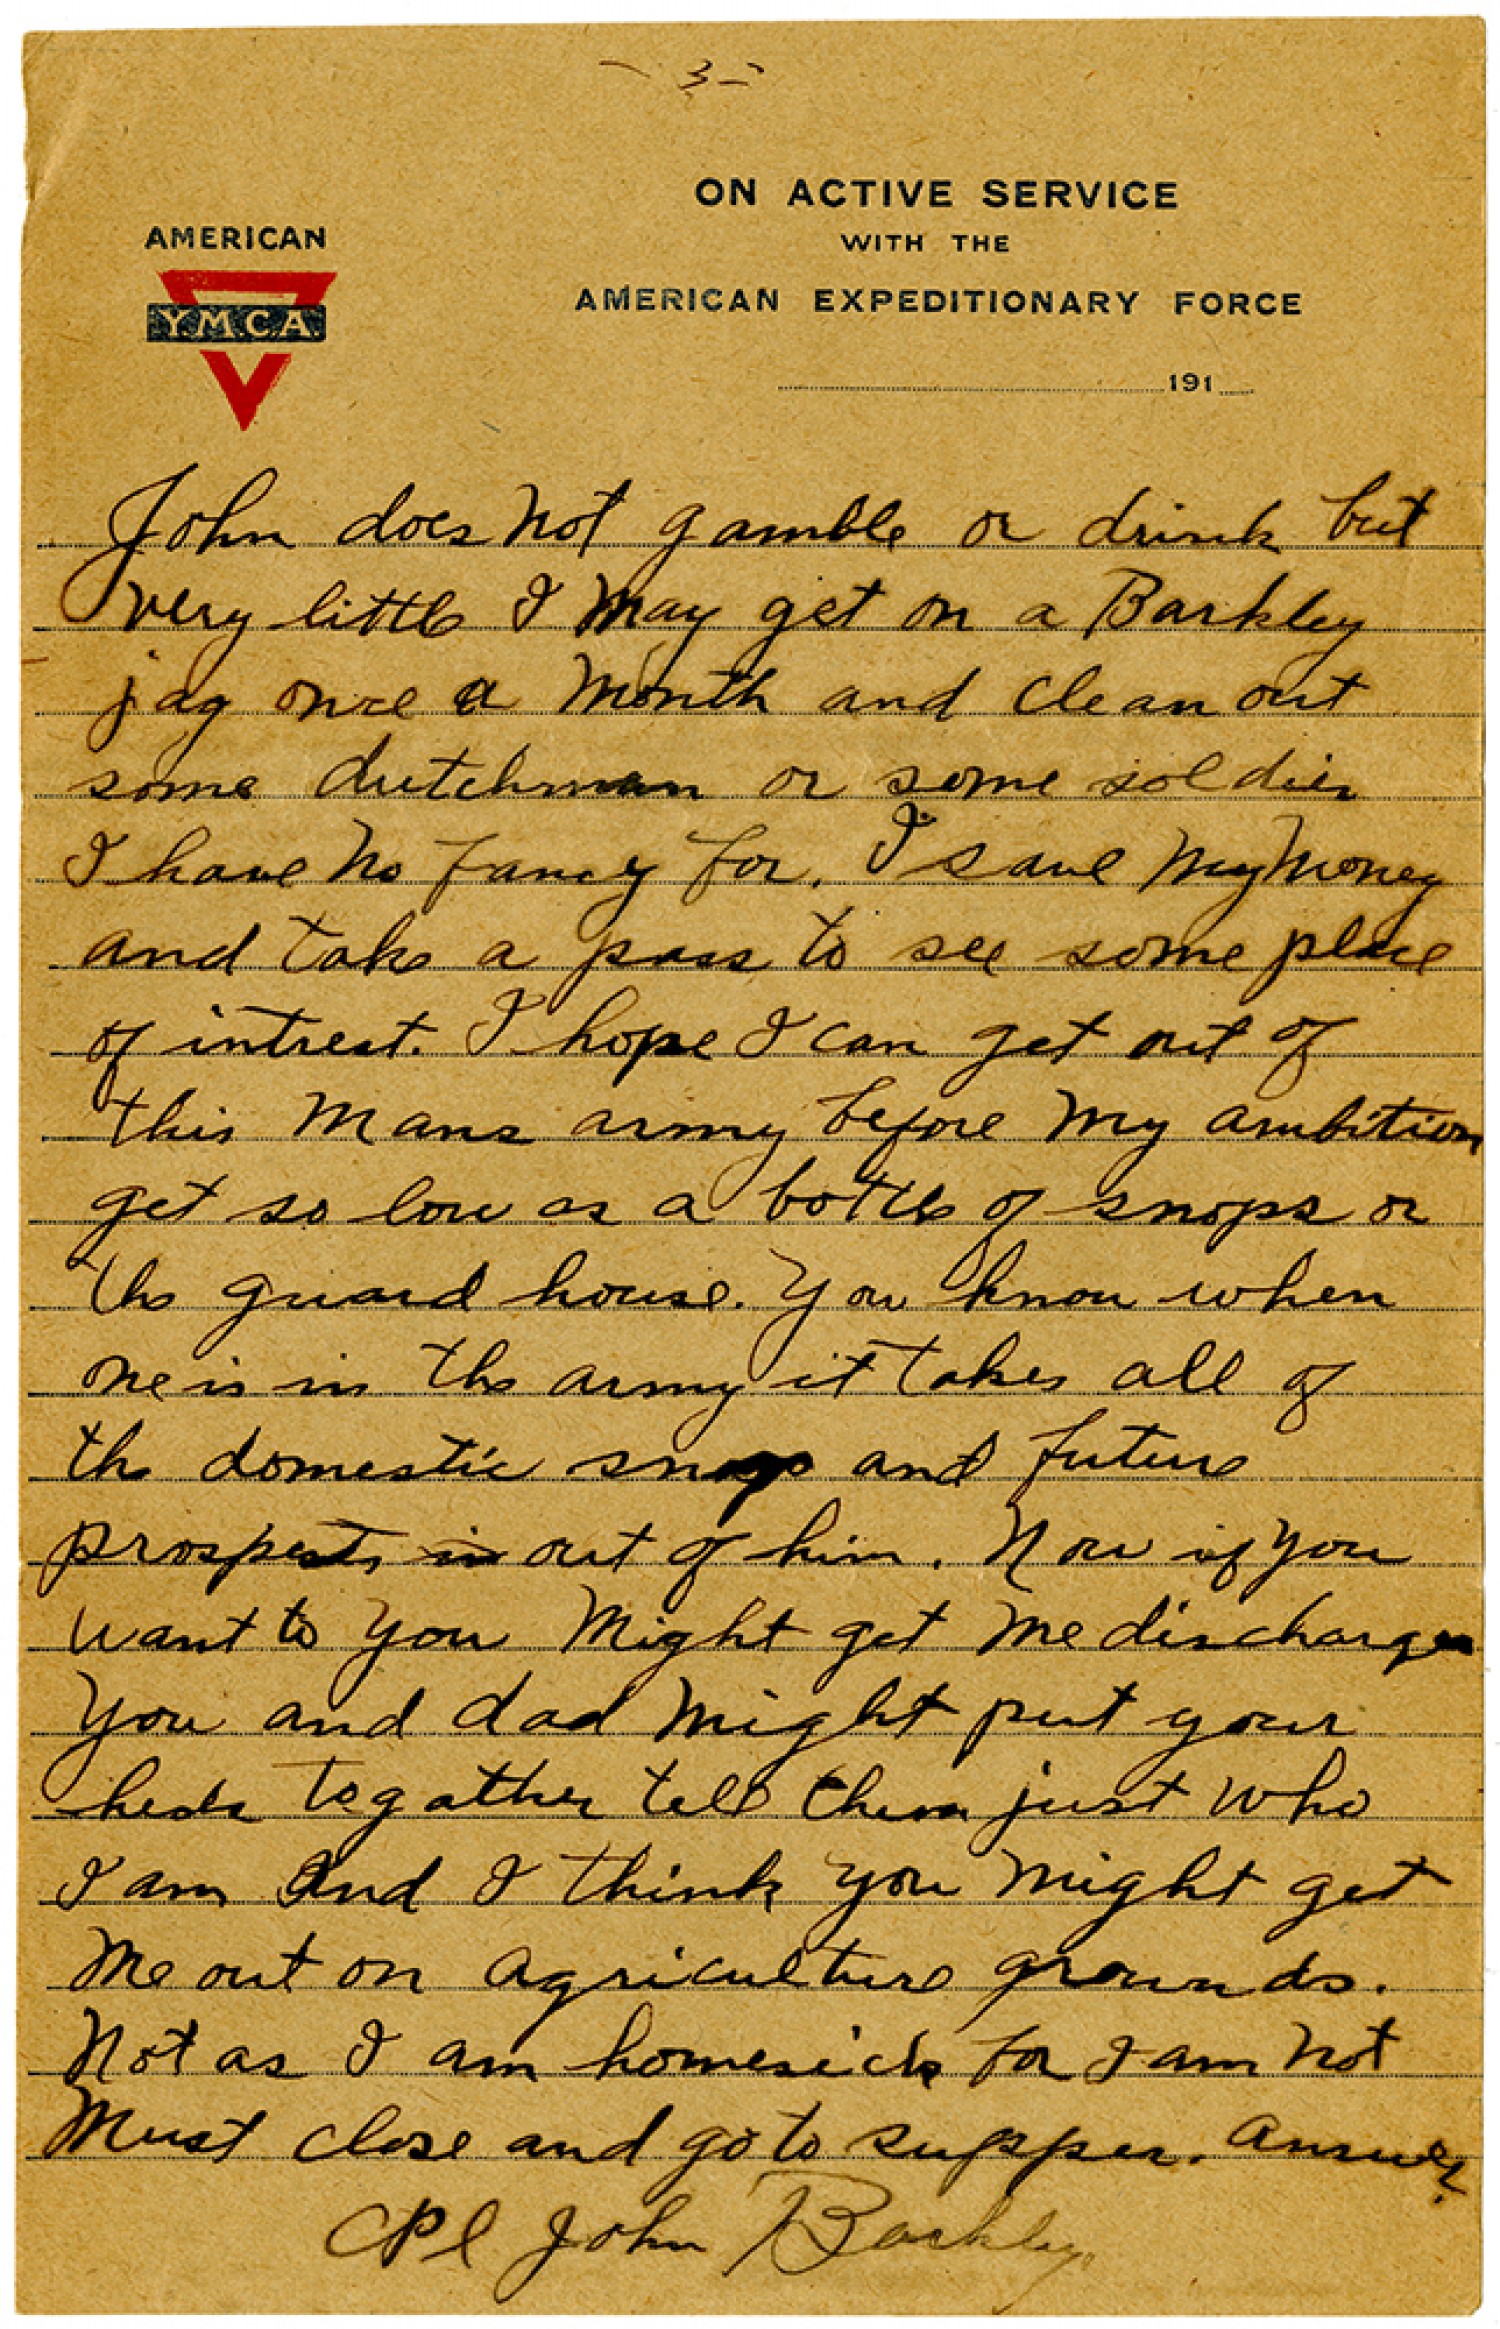 - 3 -
ON ACTIVE SERVICE
WITH THE
AMERICAN EXPEDITIONARY FORCE
AMERICAN
Y.M.C.A.
191
John does not gamble or drink but
very little I may get on a Barkley
jag once a month and clean out
some dutchman or some soldier
I have no fancy for. I save my money
and take a pass to see some place
of intrest. I hope I can get out of
this mans army before my ambition
get so low as a bottle of snops or
the guard house. You know when
one is in the army it takes all of
the domestic and future
prospects out of him. Now if you
want to you might get me discharged
You and dad might put your
heds togather tell them just who
I am and I think you might get
me out on agriculture grounds.
Not as I am homesick for I am not
Must close and go to supper. Answer.
CPl John Barkley.